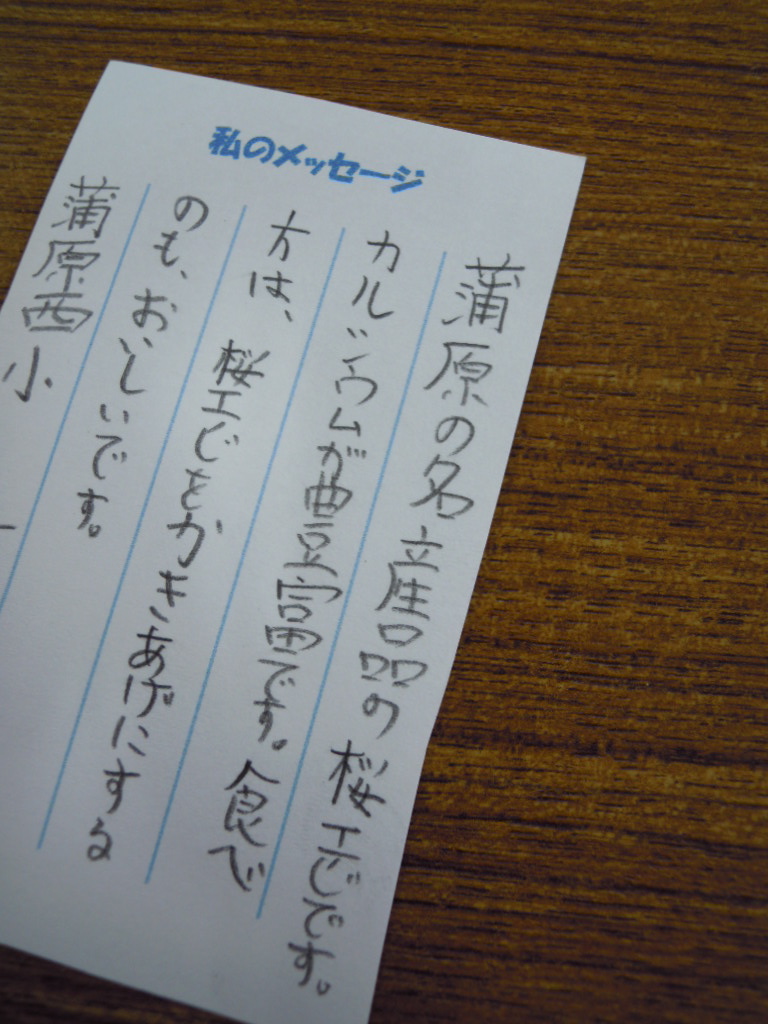 私のメッセージ
蒲原の名産品の桜エビです。
カルシウムが豊富です。食べ
方は、桜エビをかきあげにする
のも、おいしいです。
蒲原西小